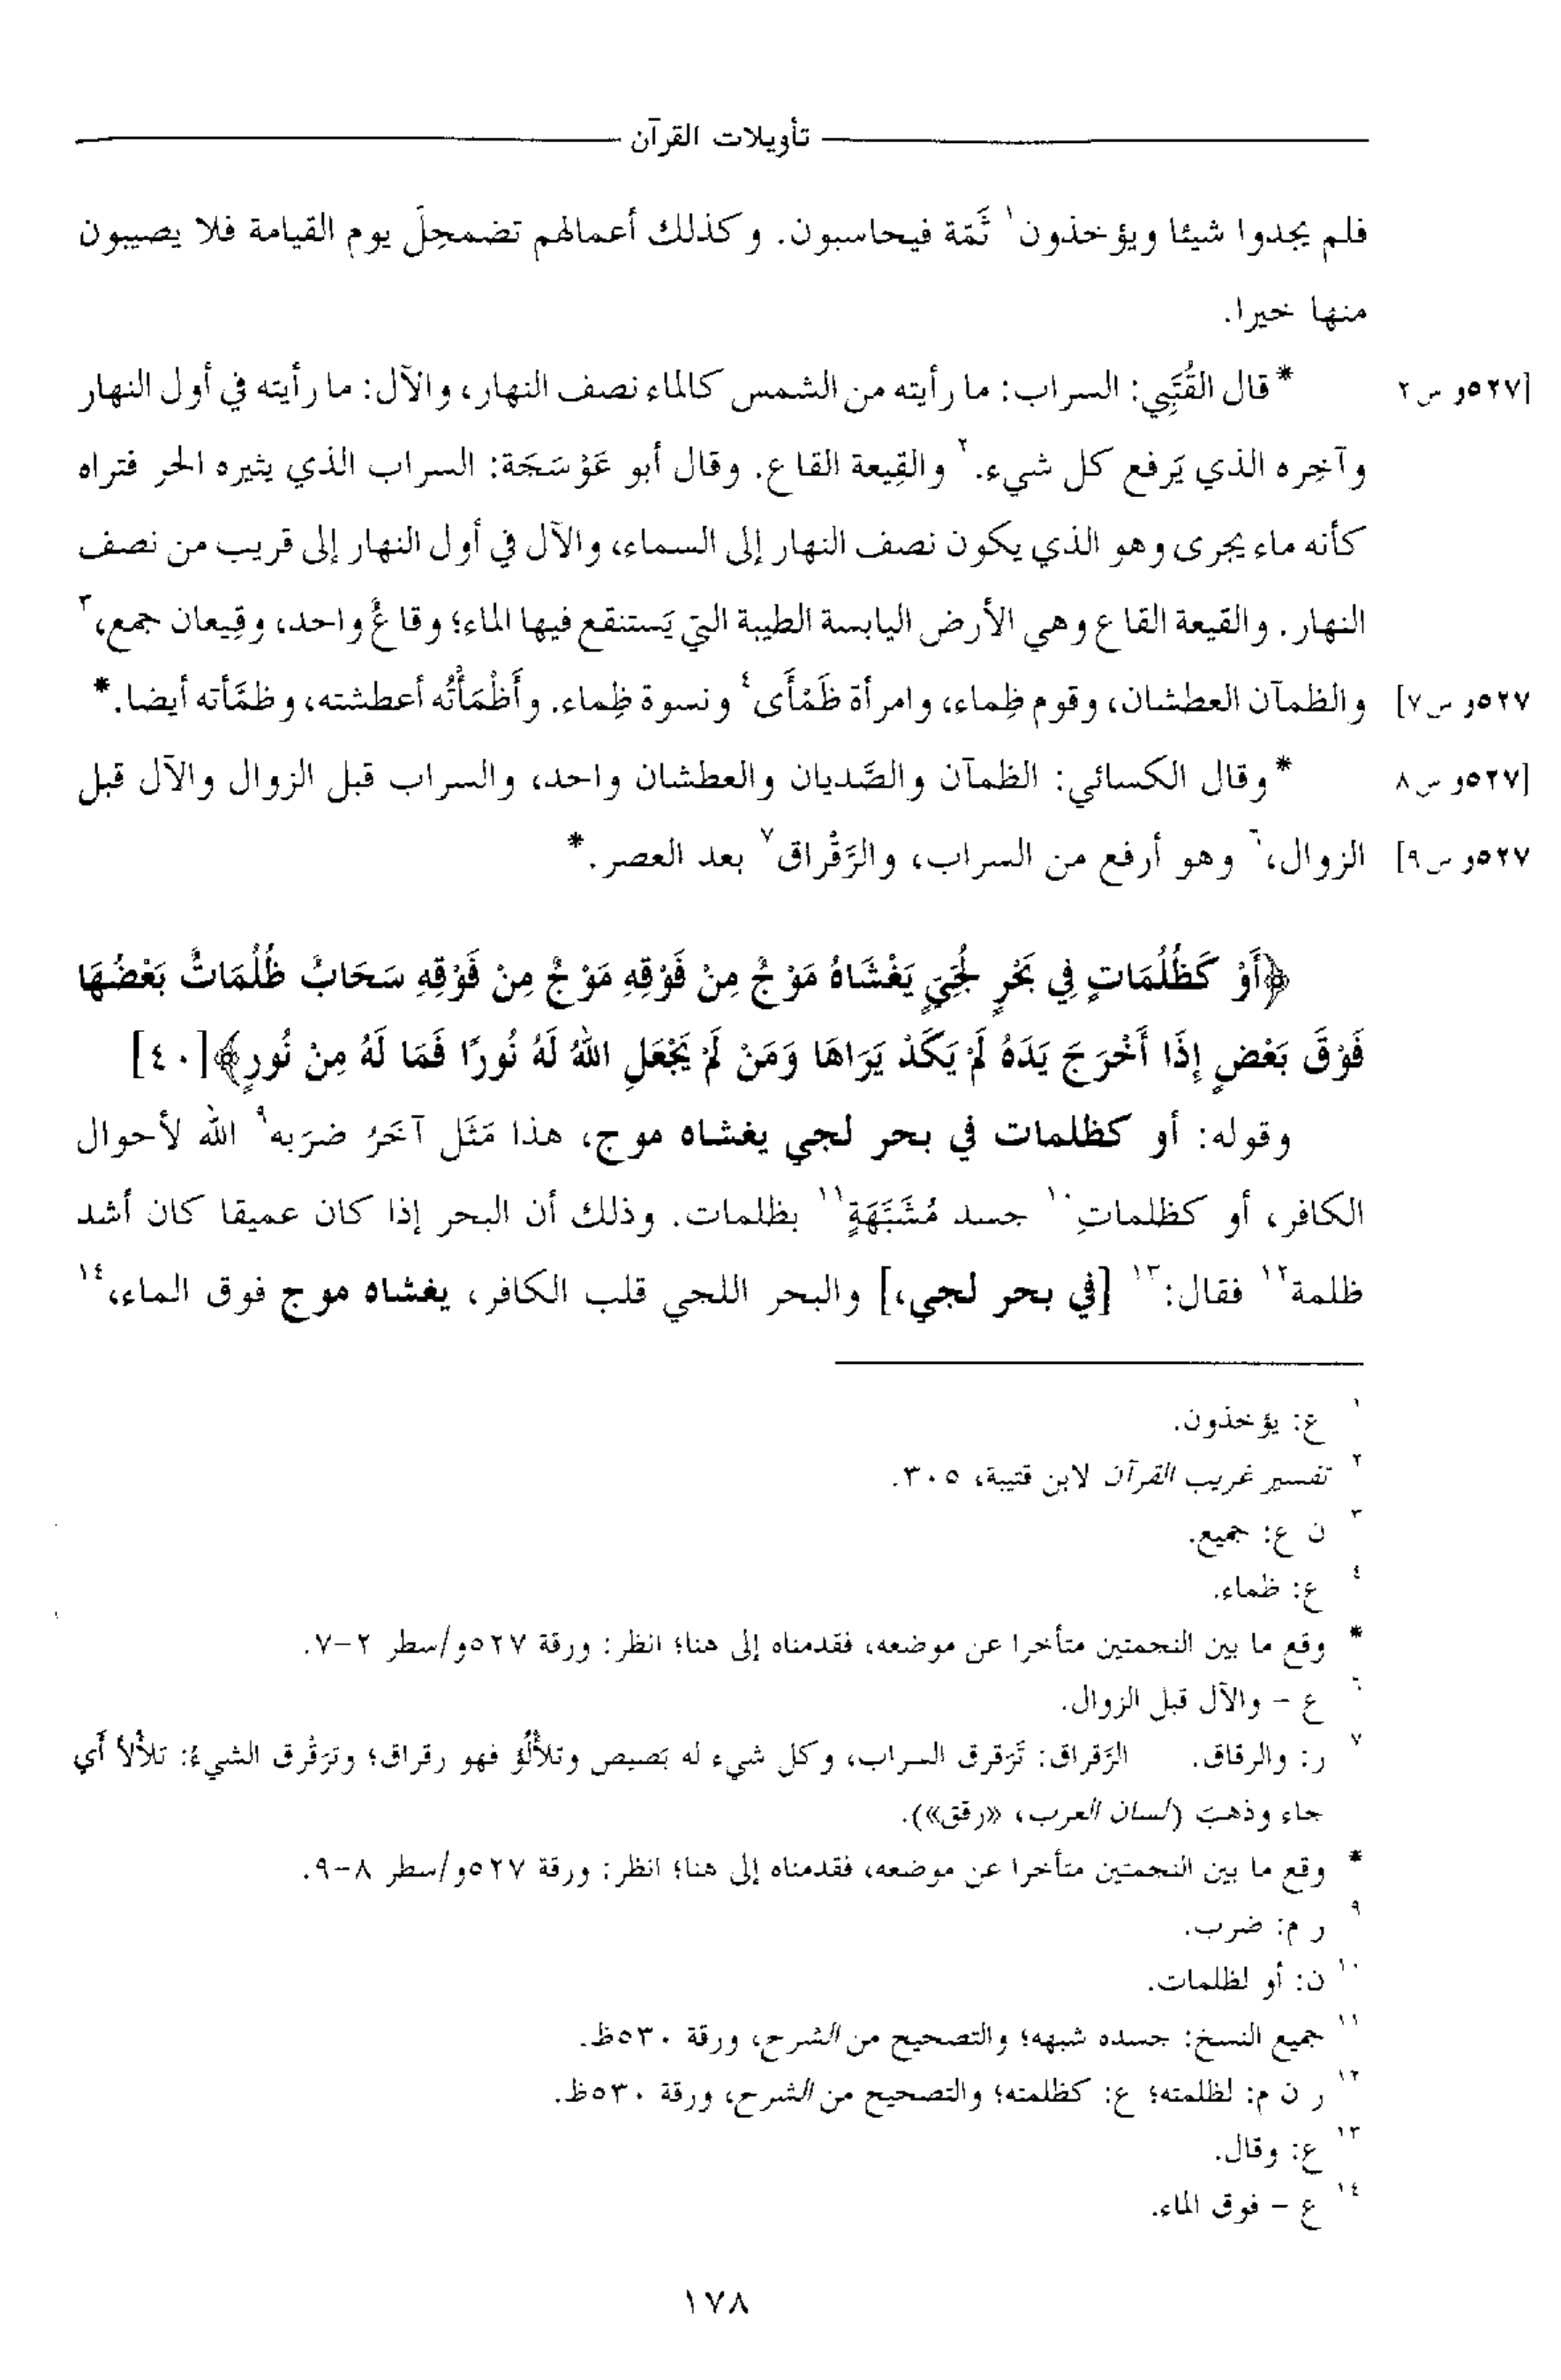 تأويلات القرآن
فلم يجدوا شيئا ويؤخذون١ ثَمّة فيحاسبون. وكذلك أعمالهم تضمحِلّ يوم القيامة فلا يصيبون
منها خيرا.
[٥٢٧و س٢ *قال القُتَبِي: السراب: ما رأيته من الشمس كالماء نصف النهار، والآل: ما رأيته في أول النهار
وآخِره الذي يَرفع كل شيء.٢ والقِيعة القاع. وقال أبو عَوْسَجَة: السراب الذي يثيره الحر فتراه
كأنه ماء يجرى وهو الذي يكون نصف النهار إلى السماء، والآل في أول النهار إلى قريب من نصف
النهار. والقيعة القاع وهي الأرض اليابسة الطيبة التي يَستنقع فيها الماء؛ وقاعٌ واحد، وقِيعان جمع،٣
٥٢٧و س٧] والظمآن العطشان، وقوم ظِماء، وامرأة ظَمْأَى٤ ونسوة ظِماء. وأَظْمَأْتُه أعطشته، وظمَّأته أيضا.*
[٥٢٧و س٨ *وقال الكسائي: الظمآن والصَّديان والعطشان واحد، والسراب قبل الزوال والآل قبل
٥٢٧و س٩] الزوال،٦ وهو أرفع من السراب، والرَّقْراق٧ بعد العصر.*
﴿أَوْ كَظُلُمَاتٍ فِي بَحْرٍ لُجِّيٍّ يَغْشَاهُ مَوْجٌ مِنْ فَوْقِهِ مَوْجٌ مِنْ فَوْقِهِ سَحَابٌ ظُلُمَاتٌ بَعْضُهَا
فَوْقَ بَعْضٍ إِذَا أَخْرَجَ يَدَهُ لَمْ يَكَدْ يَرَاهَا وَمَنْ لَمْ يَجْعَلِ اللهُ لَهُ نُورًا فَمَا لَهُ مِنْ نُورٍ﴾[٤٠]
وقوله: أو كظلمات في بحر لجي يغشاه موج، هذا مَثَل آخَرُ ضرَبه٩ الله لأحوال
الكافر، أو كظلماتِ١٠ جسد مُشَبَّهَةٍ١١ بظلمات. وذلك أن البحر إذا كان عميقا كان أشد
ظلمة١٢ فقال:١٣ [في بحر لجي،] والبحر اللجي قلب الكافر، يغشاه موج فوق الماء،١٤
١ ع: يؤخذون.
٢ تفسير غريب القرآن لابن قتيبة، ٣٠٥.
٣ ن ع: جميع.
٤ ع: ظماء.
* وقع ما بين النجمتين متأخرا عن موضعه، فقدمناه إلى هنا؛ انظر: ورقة ٥٢٧و/سطر ٢-٧.
٦ ع - والآل قبل الزوال.
٧ ر: والرقاق. الرَّقراق: تَرَقرق السراب، وكل شيء له بَصيص وتلأْلُؤ فهو رقراق؛ وترَقْرق الشيءُ: تلأْلأ أي
جاء وذهبَ (لسان العرب، «رقق»).
* وقع ما بين النجمتين متأخرا عن موضعه، فقدمناه إلى هنا؛ انظر: ورقة ٥٢٧و/سطر ٨-٩.
٩ ر م: ضرب.
١٠ ن: أو لظلمات.
١١ جميع النسخ: جسده شبهه؛ والتصحيح من الشرح، ورقة ٥٣٠ظ.
١٢ ر ن م: لظلمته؛ ع: كظلمته؛ والتصحيح من الشرح، ورقة ٥٣٠ظ.
١٣ ع: وقال.
١٤ ع - فوق الماء.
١٧٨